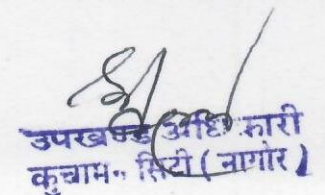 उपखण्ड अधिकारी
कुचामन सिटी (नागोर)